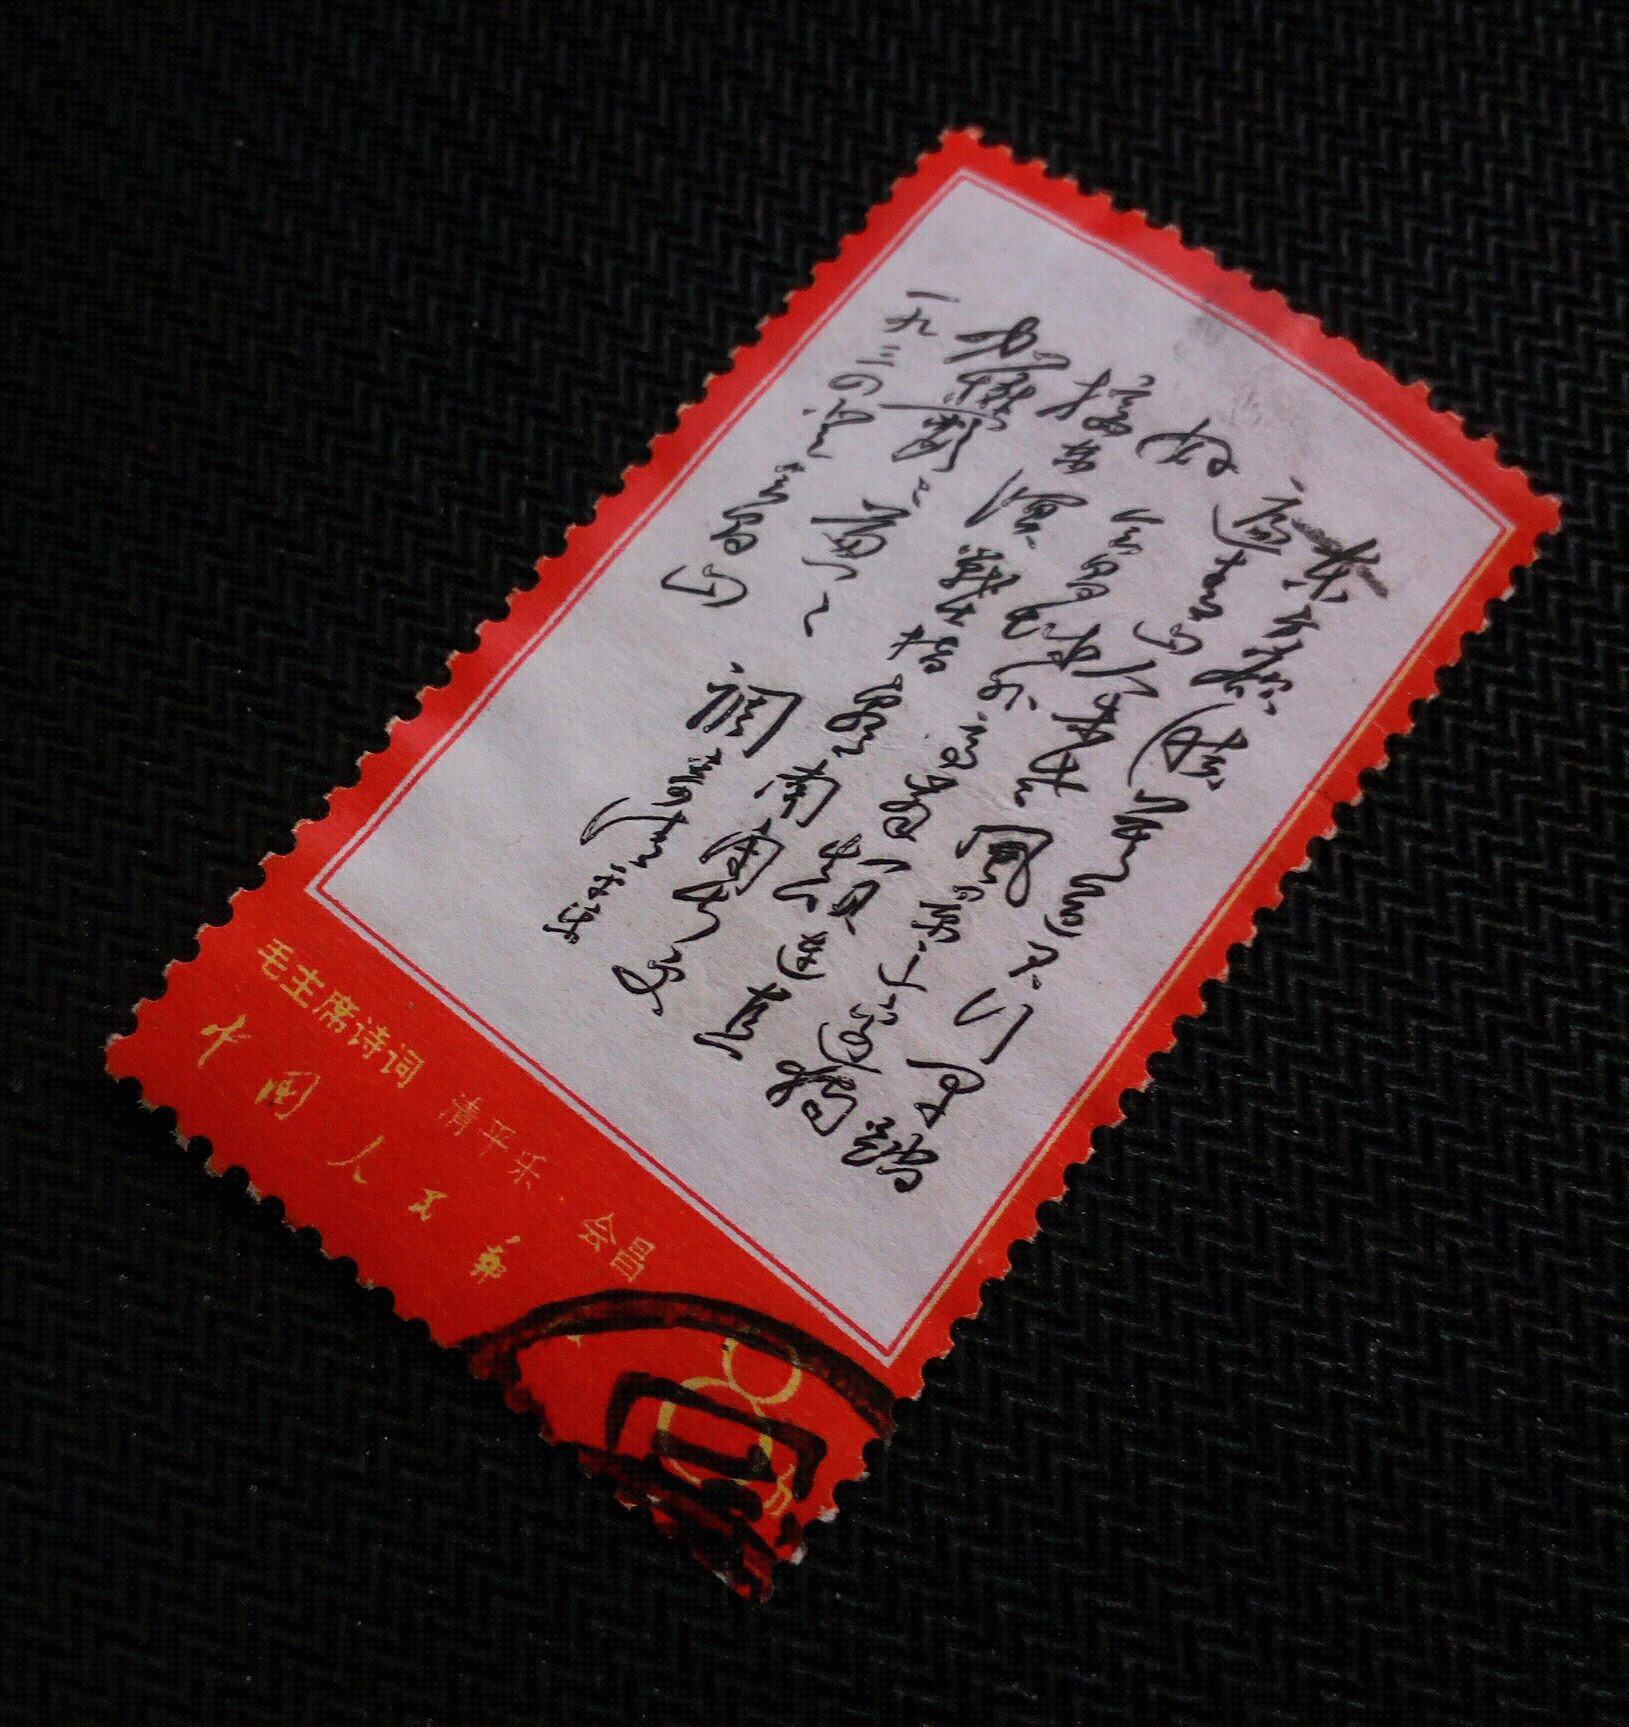 东方欲晓莫道君行早踏
遍青山人未老风景这边独
好会昌城外高峰颠连直
接东溟战士指看南粤更
加郁郁葱葱 调寄清平乐
一九三四年会昌山
毛主席诗词 清平乐·会昌
中国人民邮
8